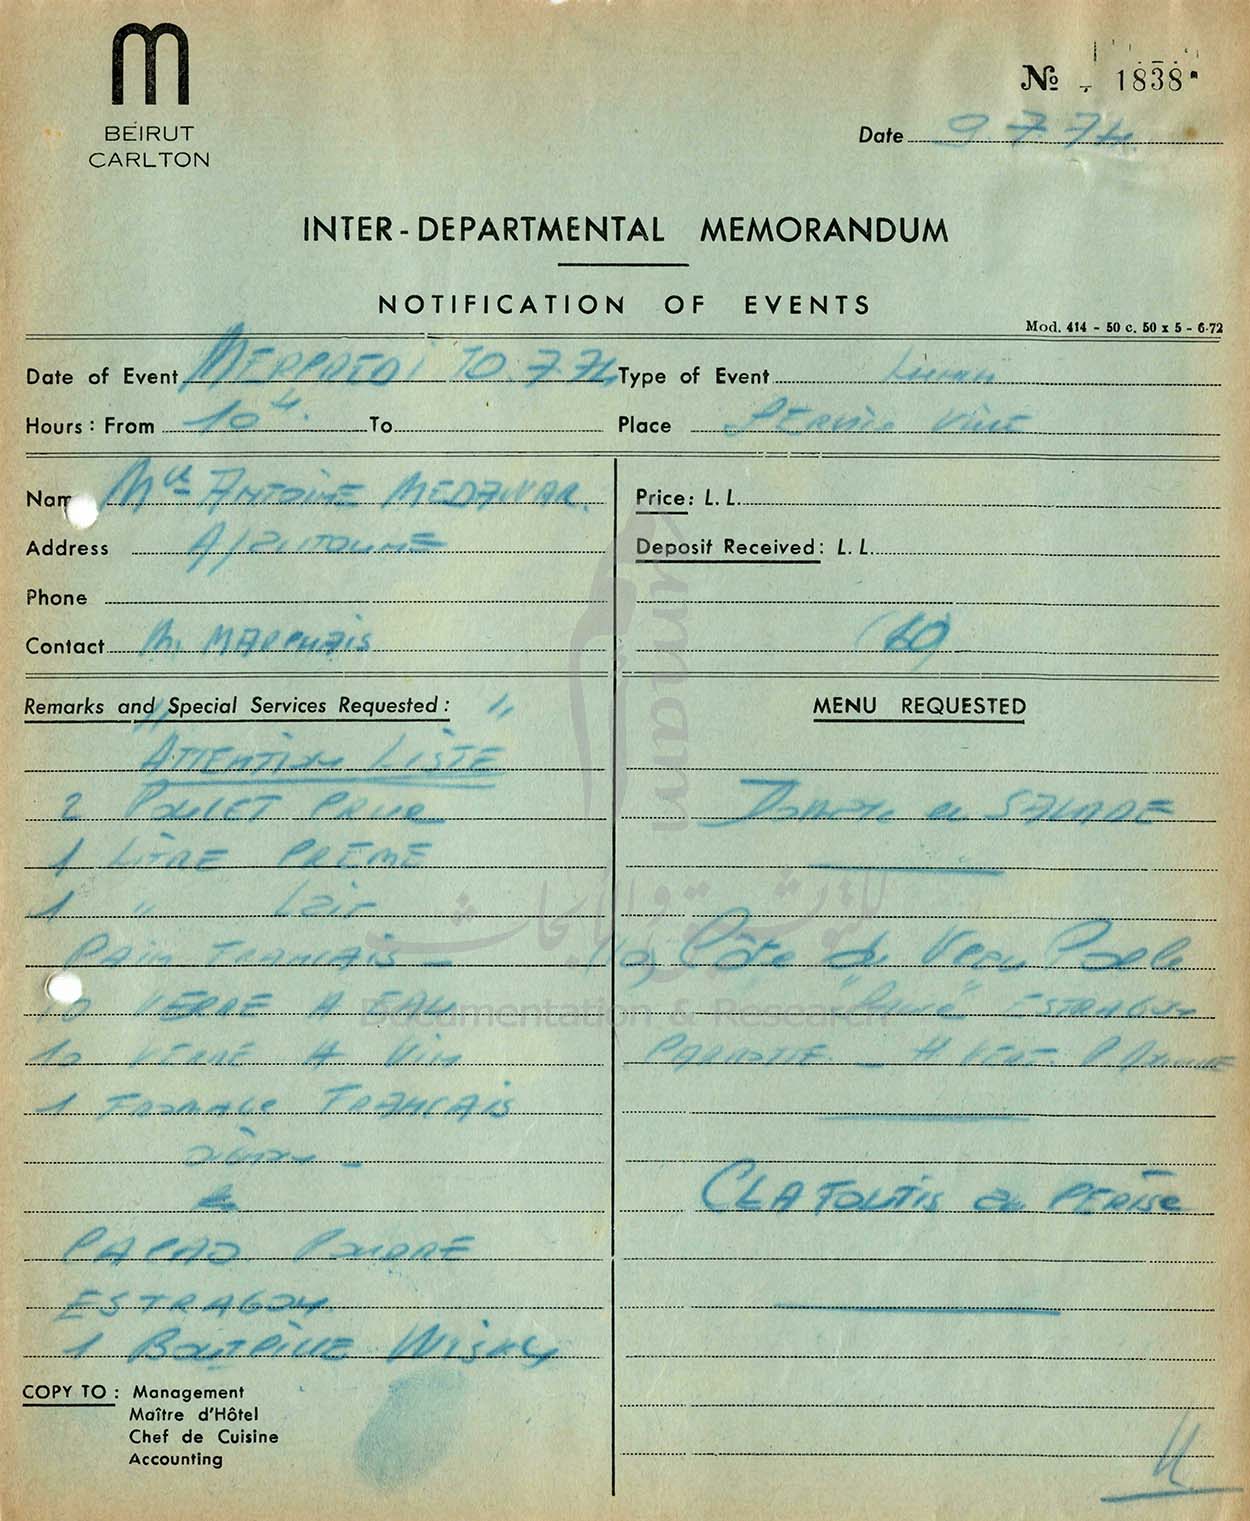 BEIRUT
CARLTON
№ 1838
Date 9.7.74
INTER-DEPARTMENTAL MEMORANDUM
NOTIFICATION OF EVENTS
Mod. 414 - 50 c. 50 x 5 - 6-72
Date of Event MERCREDI 10.7.74 Type of Event
Hours: From 10 H. To Place SERVICE
Name ANTOINE MEDAWAR.
Address
Phone
Contact M.
Price: L. L.
Deposit Received: L. L.
(10)
Remarks and Special Services Requested:
" "
ATTENTION LISTE
2 POULET
1 LITRE CRÈME
1 "
PAIN FRANCAIS -
10 VERRE A EAU
10 VERRE A VIN
1 FROMAGE FRANCAIS
POUDRE
ESTRAGON
1 BOUTEILLE WISKY
MENU REQUESTED
DORADE en SALADE
Côte de Veau Poele
ESTRAGON
CLAFOUTIS CERISE
COPY TO: Management
Maître d'Hôtel
Chef de Cuisine
Accounting
umam
للتوثيق والأبحاث
Documentation & Research